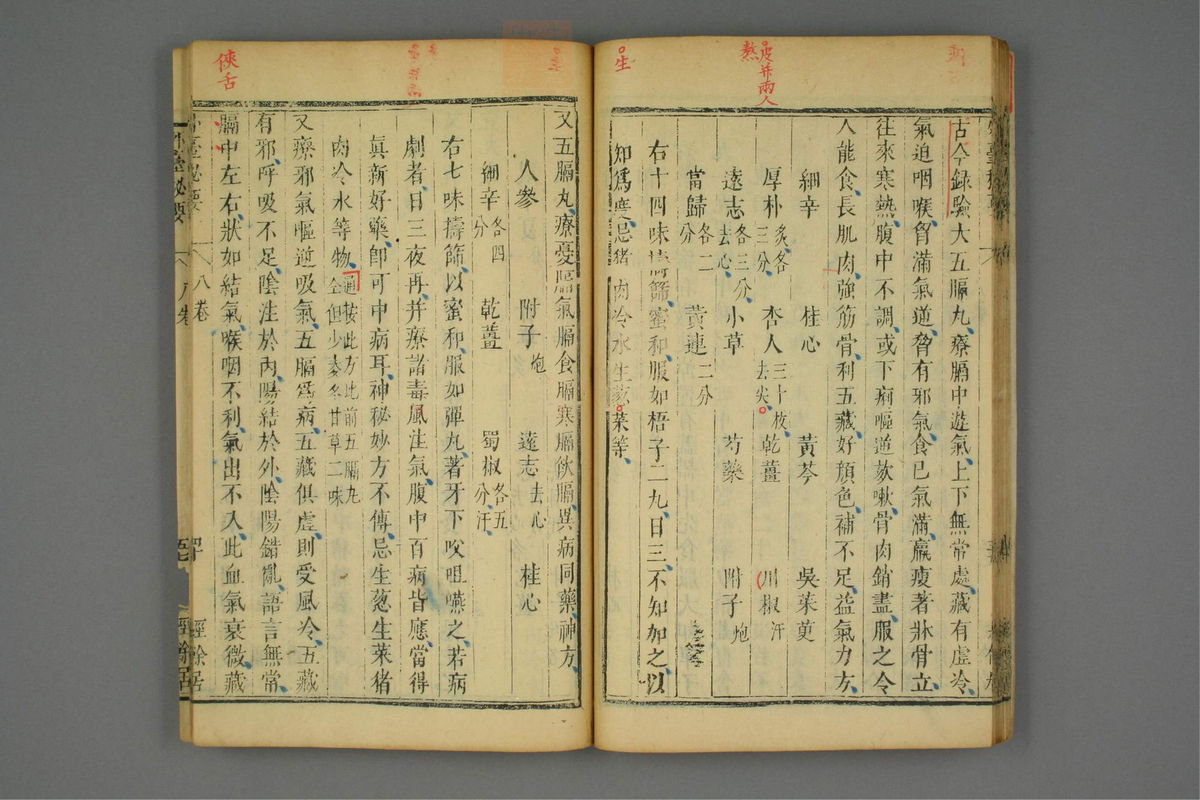 古今錄驗大五膈丸療膈中遊氣上下無常處藏有虛冷
氣迫咽喉胷滿氣逆脅有邪氣食已氣滿羸瘦著牀骨立
往來寒熱腹中不調或下痢嘔逆欬嗽骨肉銷盡服之令
人能食長肌肉強筋骨利五藏好顏色補不足益氣力方
細辛 桂心 黃芩 吳茱萸
厚朴炙各三分 杏人三十枚去尖 乾薑 川椒汗
遠志各三分去心 小草 芍藥 附子炮
當歸各二分 黃連二分
右十四味擣篩蜜和服如梧子二丸日三不知加之以
知爲度忌猪肉冷水生菜等
又五膈丸療憂膈氣膈食膈寒膈飲膈異病同藥神方
人參 附子炮 遠志去心 桂心
細辛各四分 乾薑 蜀椒各五分汗
右七味擣篩以蜜和服如彈丸著牙下㕮咀嚥之若病
劇者日三夜再并療諸毒風注氣腹中百病皆應當得
眞新好藥卽可中病耳神秘妙方不傳忌生葱生菜猪
肉冷水等物通按此方比前五膈丸全但少麥冬甘草二味
又療邪氣嘔逆吸氣五膈爲病五藏俱虛則受風冷五藏
有邪呼吸不足陰注於內陽結於外陰陽錯亂語言無常
膈中左右狀如結氣喉咽不利氣出不入此血氣衰微藏
外臺秘要
八卷
經餘居
生
皮幷兩人
熬
俠舌